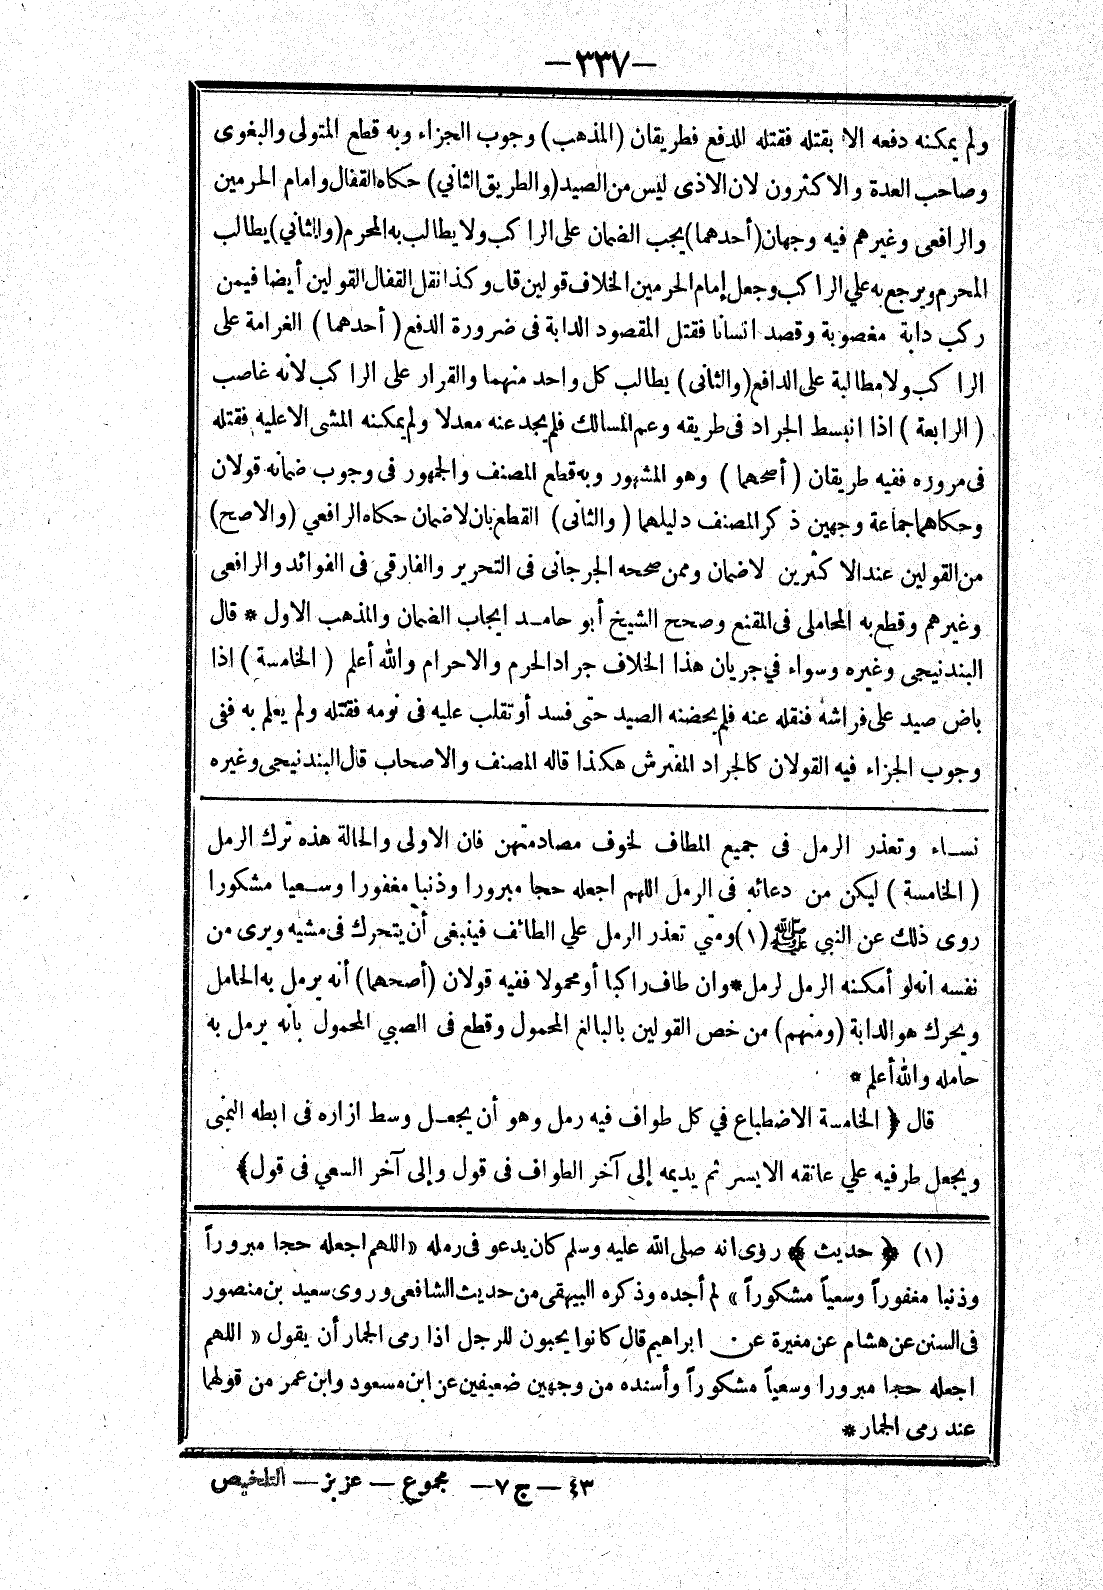 —٣٣٧—
ولم يمكنه دفعه الا بقتله فقتله للدفع فطريقان (المذهب) وجوب الجزاء وبه قطع المتولى والبغوى
وصاحب العدة والاكثرون لان الاذى ليس من الصيد (والطريق الثاني) حكاه القفال وامام الحرمين
والرافعى وغيرهم فيه وجهان (أحدهما) يجب الضمان على الراكب ولا يطالب به المحرم (والثاني) يطالب
المحرم ويرجع به علي الراكب وجعل إمام الحرمين الخلاف قولين قال وكذا نقل القفال القولين أيضا فيمن
ركب دابة مغصوبة وقصد انسانا فقتل المقصود الدابة فى ضرورة الدفع (أحدهما) الغرامة على
الراكب ولا مطالبة على الدافع (والثانى) يطالب كل واحد منهما والقرار على الراكب لانه غاصب
(الرابعة) اذا انبسط الجراد فى طريقه وعم المسالك فلم يجد عنه معدلا ولم يمكنه المشى الا عليه فقتله
فى مروره ففيه طريقان (أصحهما) وهو المشهور وبه قطع المصنف والجمهور فى وجوب ضمانه قولان
وحكاهما جماعة وجهين ذكر المصنف دليلهما (والثانى) القطع بان لا ضمان حكاه الرافعي (والاصح)
من القولين عند الاكثرين لا ضمان وممن صححه الجرجانى فى التحرير والفارقى فى الفوائد والرافعى
وغيرهم وقطع به المحاملى فى المقنع وصحح الشيخ أبو حامد ايجاب الضمان والمذهب الاول * قال
البندنيجى وغيره وسواء في جريان هذا الخلاف جراد الحرم والاحرام والله أعلم (الخامسة) اذا
باض صيد على فراشه فنقله عنه فلم يحضنه الصيد حتى فسد أو تقلب عليه فى نومه فقتله ولم يعلم به ففى
وجوب الجزاء فيه القولان كالجراد المفترش هكذا قاله المصنف والاصحاب قال البندنيجى وغيره
نساء وتعذر الرمل فى جميع المطاف لخوف مصادمتهن فان الاولى والحالة هذه ترك الرمل
(الخامسة) ليكن من دعائه فى الرمل اللهم اجعله حجا مبرورا وذنبا مغفورا وسعيا مشكورا
روى ذلك عن النبي ﷺ (١) ومتي تعذر الرمل علي الطائف فينبغى أن يتحرك فى مشيه ويرى من
نفسه انه لو أمكنه الرمل لرمل * وان طاف راكبا أو محمولا ففيه قولان (أصحهما) أنه يرمل به الحامل
ويحرك هو الدابة (ومنهم) من خص القولين بالبالغ المحمول وقطع فى الصبي المحمول بأنه يرمل به
حامله والله أعلم *
قال ﴿ الخامسة الاضطباع في كل طواف فيه رمل وهو أن يجعل وسط ازاره فى ابطه اليمنى
ويجعل طرفيه علي عاتقه الايسر ثم يديمه إلى آخر الطواف فى قول وإلى آخر السعي فى قول﴾
(١) ﴿ حديث ﴾ روى انه صلى الله عليه وسلم كان يدعو فى رمله «اللهم اجعله حجا مبروراً
وذنبا مغفوراً وسعياً مشكوراً» لم أجده وذكره البيهقى من حديث الشافعى وروى سعيد بن منصور
فى السنن عن هشام عن مغيرة عن ابراهيم قال كانوا يحبون للرجل اذا رمى الجمار أن يقول «اللهم
اجعله حجا مبرورا وسعياً مشكوراً وأسنده من وجهين ضعيفين عن ابن مسعود وابن عمر من قولهما
عند رمى الجمار *
٤٣ — ج ٧— مجموع — عزيز — التلخيص